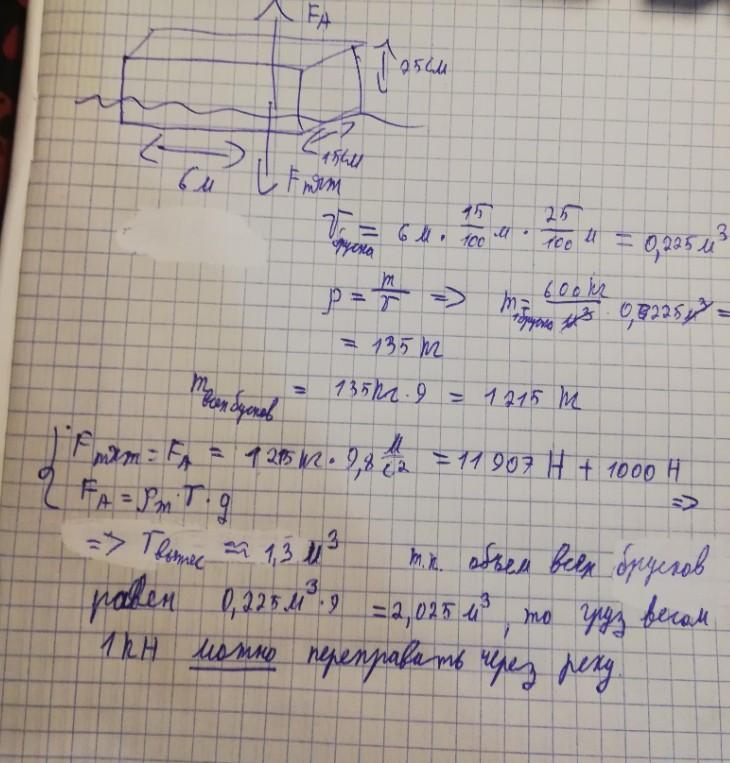 F_A
25 см
15 см
6 м
F_тяж
V_бруска = 6 м · 15/100 м · 25/100 м = 0,225 м³
ρ = m/V => m_бруска = 600 кг/м³ · 0,225 м³ =
= 135 кг
m_всех брусков = 135 кг · 9 = 1215 кг
F_тяж = F_A = 1215 кг · 9,8 м/с² = 11 907 Н + 1000 Н
=>
F_A = ρ_ж · V · g
=> V_вытес ≈ 1,3 м³ т.к. объем всех брусков
равен 0,225 м³ · 9 = 2,025 м³, то груз весом
1 кН можно переправать через реку.